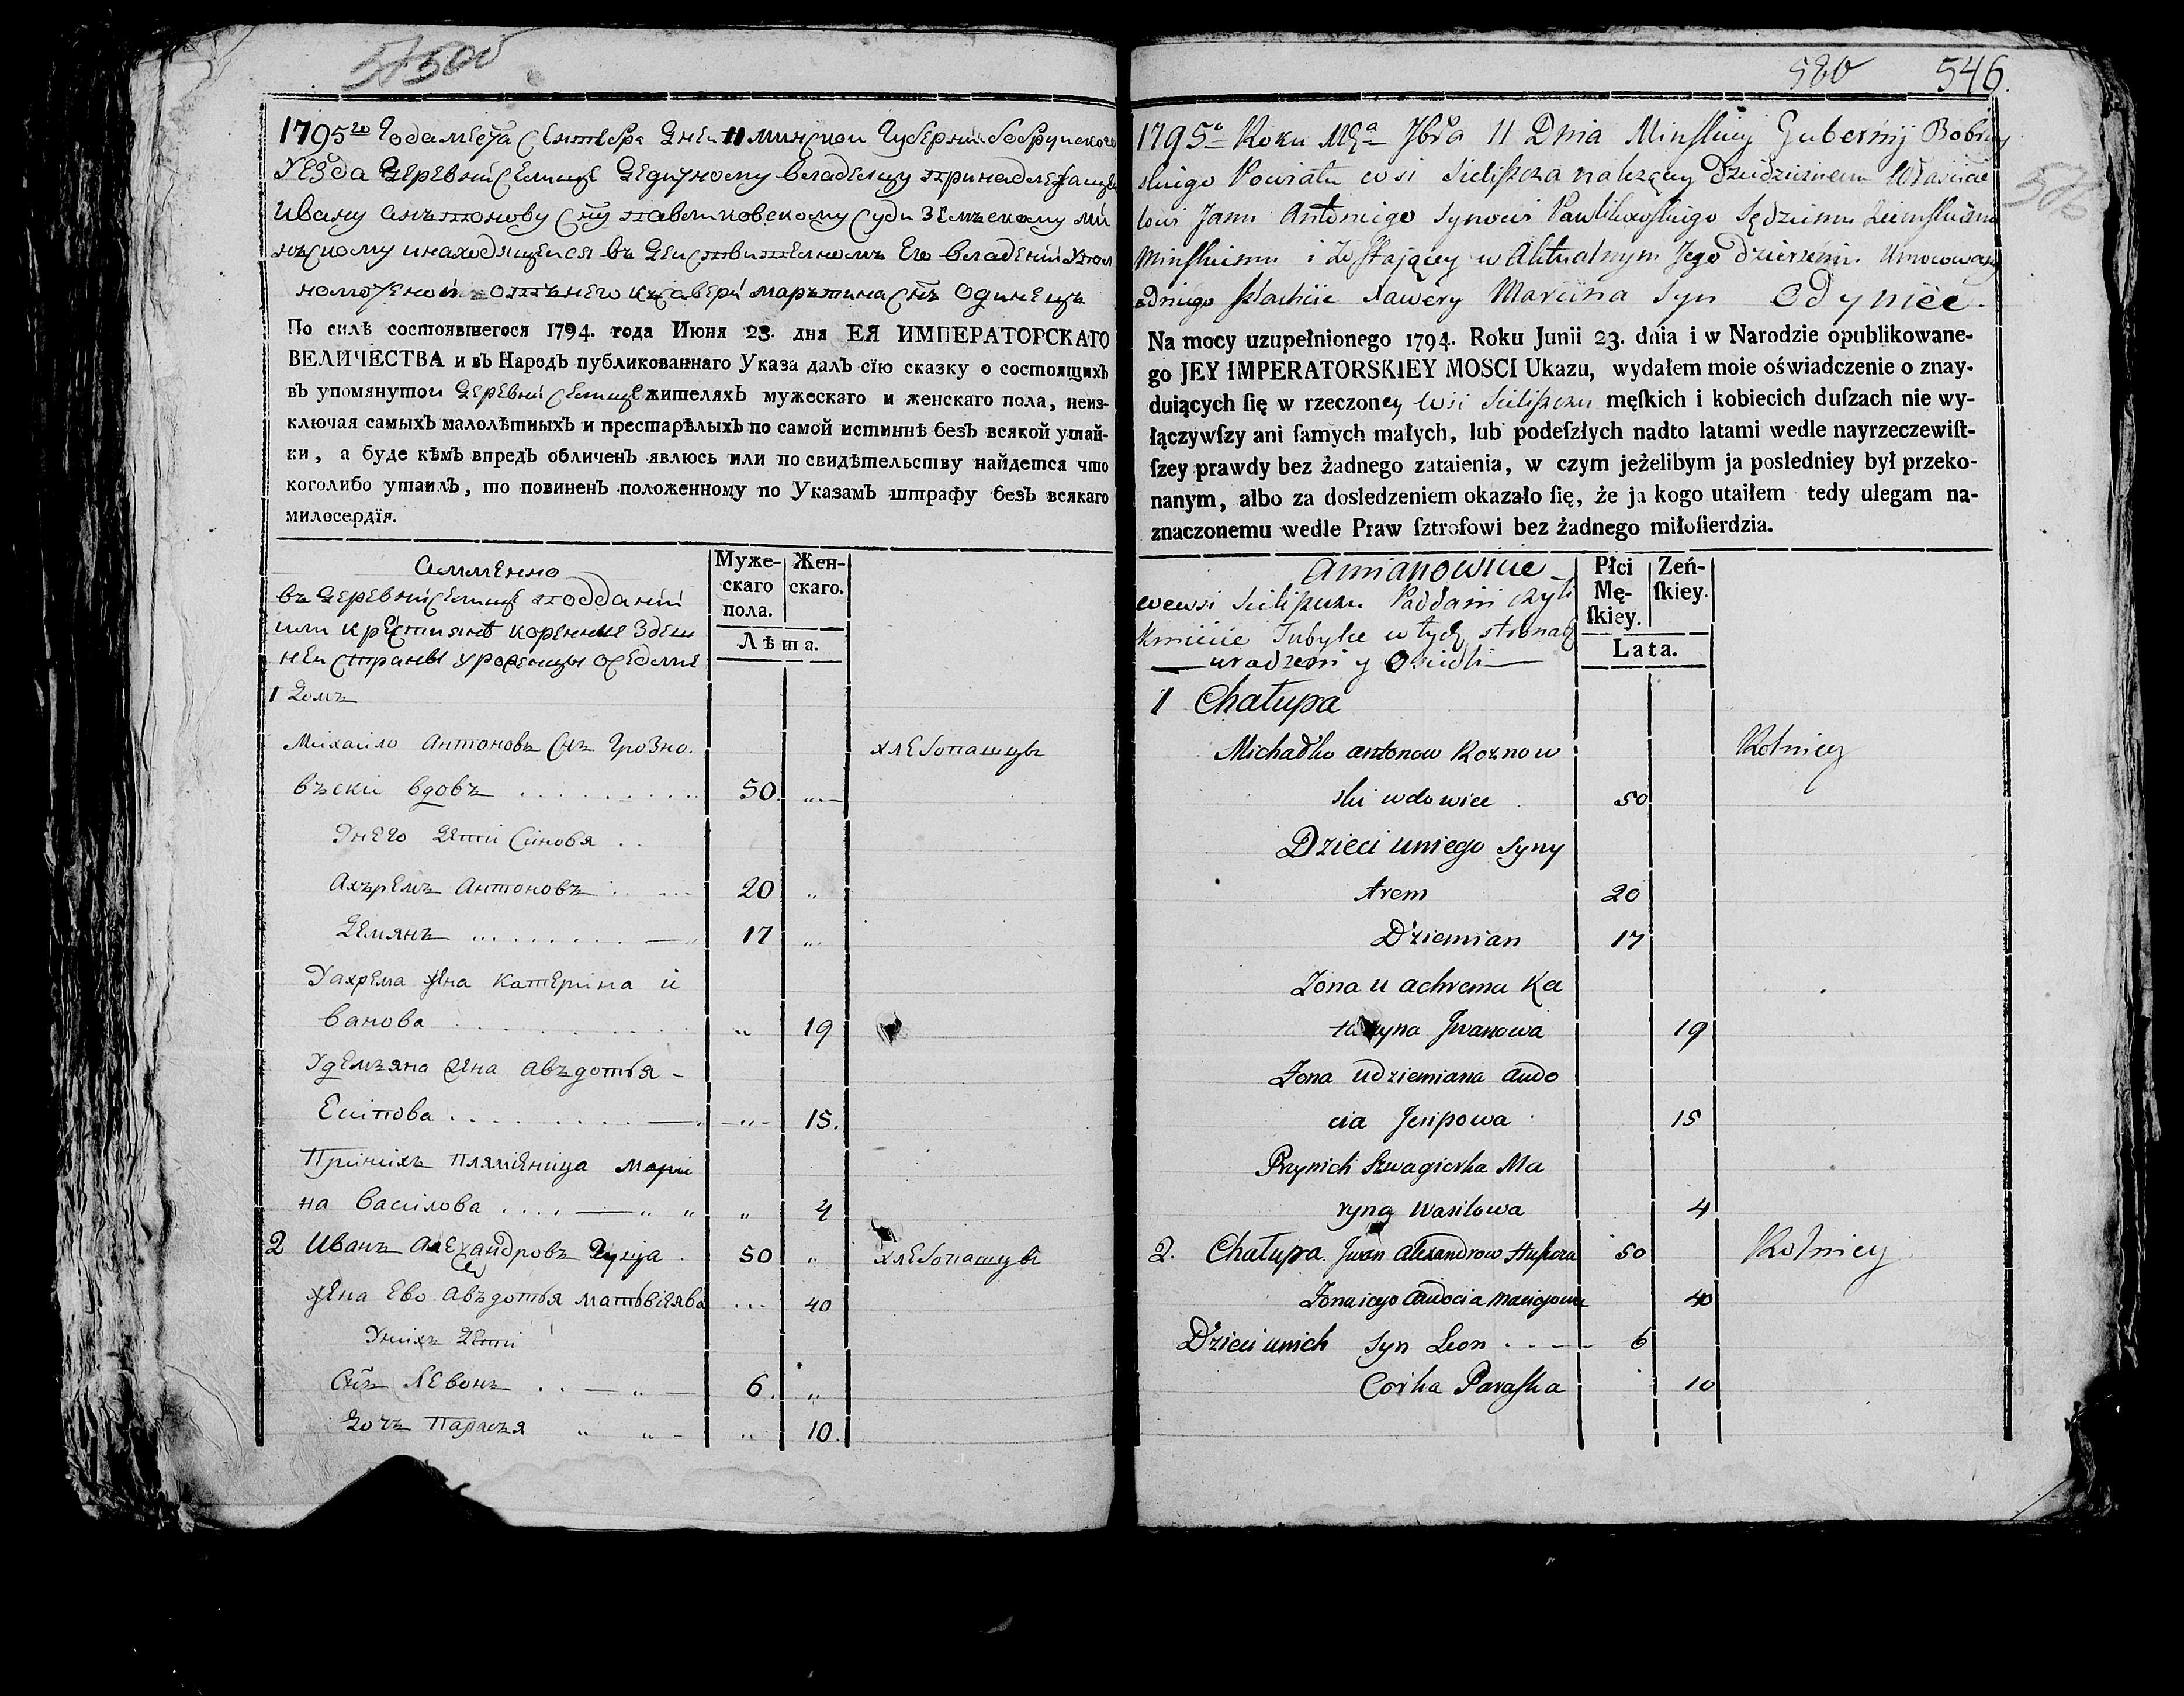 580
546.
1795го Года месца Сентебра Дня 11 Минской Губернии Бобруйского
Уезда Деревни Селище Дедичному владелцу принадлежащей
Ивану Анътонову Сну Павликовскому Суди Земъскому Ми
нъскому инаходящейся въ Действителномъ Его владении Упол
номоженой отънего Ксавери Марътина Снъ Одинецъ
По силѣ состоявшегося 1794. года Июня 23. дня ЕЯ ИМПЕРАТОРСКАГО
ВЕЛИЧЕСТВА и въ Народъ публикованнаго Указа далъ сїю сказку о состоящихъ
въ упомянутои Деревни Селище жителяхъ мужескаго и женскаго пола, неиз-
ключая самыхъ малолѣтныхъ и престарѣлыхъ по самой истиннѣ безъ всякой утай-
ки, а буде кѣмъ впредъ обличенъ явлюсь или по свидѣтельству найдется что
коголибо утаилъ, то повиненъ положенному по Указамъ штрафу безъ всякаго
милосердїя.
Аимменно
въ Деревни Селище поддании
или крестиянѣ коренные Здеш
неи страны уроженцы оседлие
Муже-
скаго
пола.
Жен-
скаго.
Лѣта.
1 Домъ
Михаило Антоновъ Снъ Грозно.
въски вдовъ 50
хлебопашцы
Унего Дети Синовя
Ахъремъ Антоновъ 20
Демянъ 17
Уахрема жена Катерина и
ванова 19
Удемъяна жена Авъдотья -
Есипова 15.
Приихъ племяница Мари
на Василова 4
2 Иванъ Александровъ Гуща 50 хлебопашцы
жена Ево Авъдотья Матьвиеява 40
Униихъ Дети
Снъ Левонъ 6.
Дочъ Парасъя 10.
1795o Roku Mca 7bra 11 Dnia Minskiey Gubernij Bobruy
skiego Powiatu wsi Sieliszcza należącey Dziedzicznemu Właścicie
lowi Janu Antoniego Synowi Pawlikowskiego Sędziemu Ziemskiemu
Minskiemu i Zostającey w Aktualnym Jego Dzierżeniu Umocowany
od niego Szlachcic Xawery Marcina Syn Odyniec
Na mocy uzupełnionego 1794. Roku Junii 23. dnia i w Narodzie opublikowane-
go JEY IMPERATORSKIEY MOSCI Ukazu, wydałem moie oświadczenie o znay-
duiących ſię w rzeczoney Wsi Sieliszczu męſkich i kobiecich duſzach nie wy-
łączywſzy ani ſamych małych, lub podeſzłych nadto latami wedle nayrzeczewiſt-
ſzey prawdy bez żadnego zataienia, w czym jeżelibym ja posledniey był przeko-
nanym, albo za dosledzeniem okazało ſię, że ja kogo utaiłem tedy ulegam na-
znaczonemu wedle Praw ſztrofowi bez żadnego miłoſierdzia.
Amianowicie
wewsi Sieliszczu Poddani czyli
Kmiecie Tubylce w tych stronach
urodzeni y Osiedli
Płci
Mę-
ſkiey.
Zeń-
ſkiey.
Lata.
1 Chałupa
Michałko antonow Roznow
ski wdowiec 50
Rolnicy
Dzieci uniego Syny
Arem 20
Dziemian 17
Zona u achrema Ka
tarzyna Jwanowa 19
Zona udziemiana audo
cia Jesipowa 15
Przynich Szwagierka Ma
ryna Wasilowa 4
2. Chałupa Jwan Alexandrow Huszcza 50 Rolnicy
Zona iego audocia Maciejowa 40
Dzieci unich Syn Leon 6
Corka Paraska 10